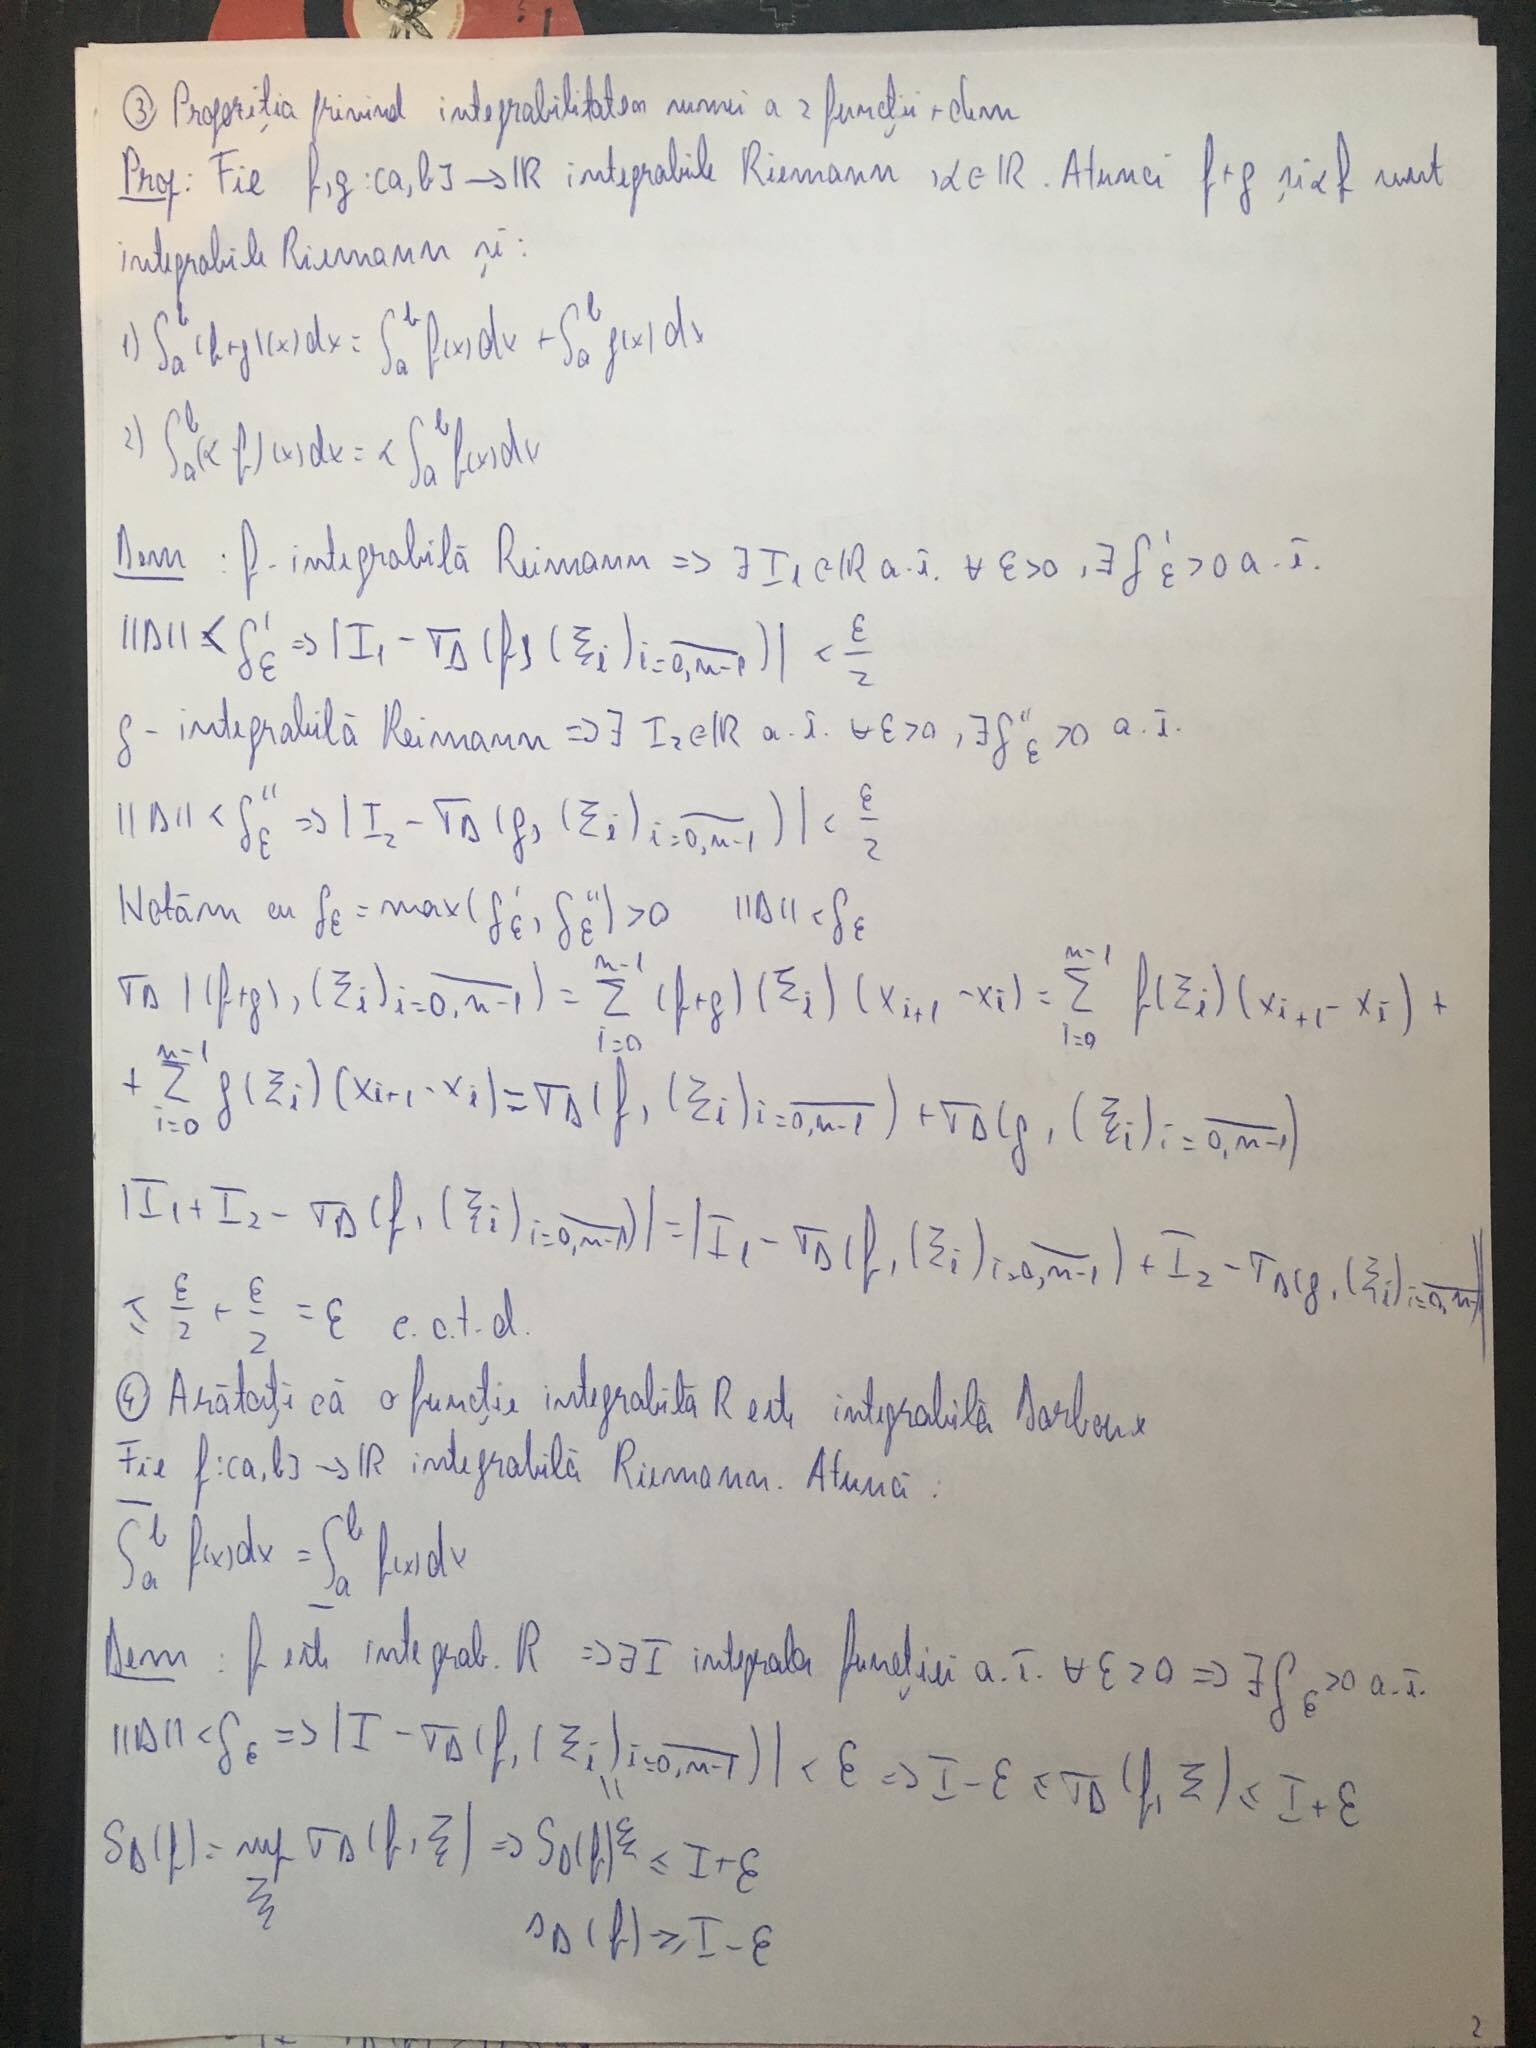 ③ Propoziția privind integrabilitatea sumei a 2 funcții + dem
Prop: Fie f,g:[a,b]→ℝ integrabile Riemann, α∈ℝ. Atunci f+g și αf sunt
integrabile Riemann și:
1) ∫_a^b (f+g)(x)dx = ∫_a^b f(x)dx + ∫_a^b g(x)dx
2) ∫_a^b (αf)(x)dx = α ∫_a^b f(x)dx
Dem: f - integrabilă Reimann => ∃ I₁∈ℝ a.î. ∀ε>0, ∃δ'_ε>0 a.î.
||Δ|| < δ'_ε => |I₁ - σ_Δ(f, (ξ_i)_{i=\overline{0,n-1}})| < ε/2
g - integrabilă Reimann => ∃ I₂∈ℝ a.î. ∀ε>0, ∃δ''_ε>0 a.î.
||Δ|| < δ''_ε => |I₂ - σ_Δ(g, (ξ_i)_{i=\overline{0,n-1}})| < ε/2
Notăm cu δ_ε = max(δ'_ε, δ''_ε)>0 ||Δ|| < δ_ε
σ_Δ((f+g), (ξ_i)_{i=\overline{0,n-1}}) = Σ_{i=0}^{n-1} (f+g)(ξ_i)(x_{i+1} - x_i) = Σ_{i=0}^{n-1} f(ξ_i)(x_{i+1} - x_i) +
+ Σ_{i=0}^{n-1} g(ξ_i)(x_{i+1} - x_i) = σ_Δ(f, (ξ_i)_{i=\overline{0,n-1}}) + σ_Δ(g, (ξ_i)_{i=\overline{0,n-1}})
|I₁+I₂ - σ_Δ(f, (ξ_i)_{i=\overline{0,n-1}})| = |I₁ - σ_Δ(f, (ξ_i)_{i=\overline{0,n-1}}) + I₂ - σ_Δ(g, (ξ_i)_{i=\overline{0,n-1}})|
≤ ε/2 + ε/2 = ε c.c.t.d.
④ Arătați că o funcție integrabilă R este integrabilă Darboux
Fie f:[a,b]→ℝ integrabilă Riemann. Atunci:
\overline{∫}_a^b f(x)dx = \underline{∫}_a^b f(x)dx
Dem: f este integrab. R => ∃ I integrala funcției a.î. ∀ε>0 => ∃δ_ε>0 a.î.
||Δ|| < δ_ε => |I - σ_Δ(f, (ξ_i)_{i=\overline{0,n-1}})| < ε => I-ε ≤ σ_Δ(f,ξ) ≤ I+ε
" ξ
S_Δ(f) = sup_ξ σ_Δ(f,ξ) => S_Δ(f) ≤ I+ε
s_Δ(f) ≥ I-ε
2